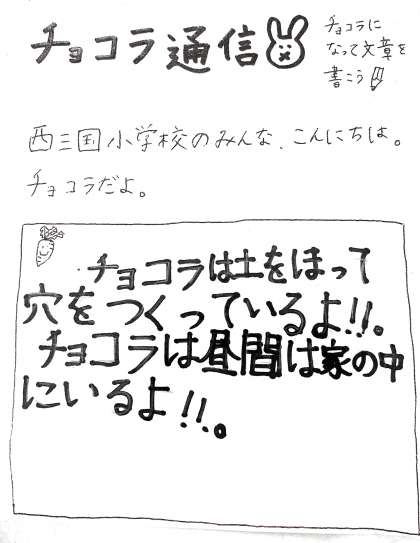 チョコラ通信
チョコラに
なって文章を
書こう
西三国小学校のみんな、こんにちは。
チョコラだよ。
チョコラは土をほって
穴をつくっているよ!!。
チョコラは昼間は家の中
にいるよ!!。